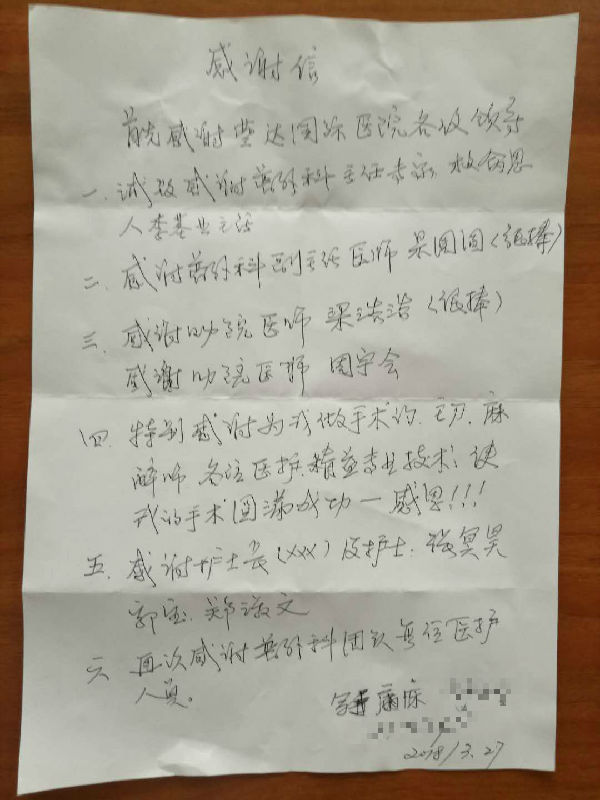 感谢信
首先感谢莹达国际医院各位领导
一、诚挚感谢普外科主任专家，救命恩
人李基业主任
二、感谢普外科副主任医师 吴圆圆（很棒）
三、感谢助院医师 梁浩浩（很棒）
感谢助院医师 周宇会
四、特别感谢为我做手术的、主刀、麻
醉师 各位医护精益专业技术；使
我的手术圆满成功一感恩!!!
五、感谢护士长（XXX）及护士：张冥昊
郭宝 郑漵文
六 再次感谢普外科团队每位医护
人员。
2018/3.27